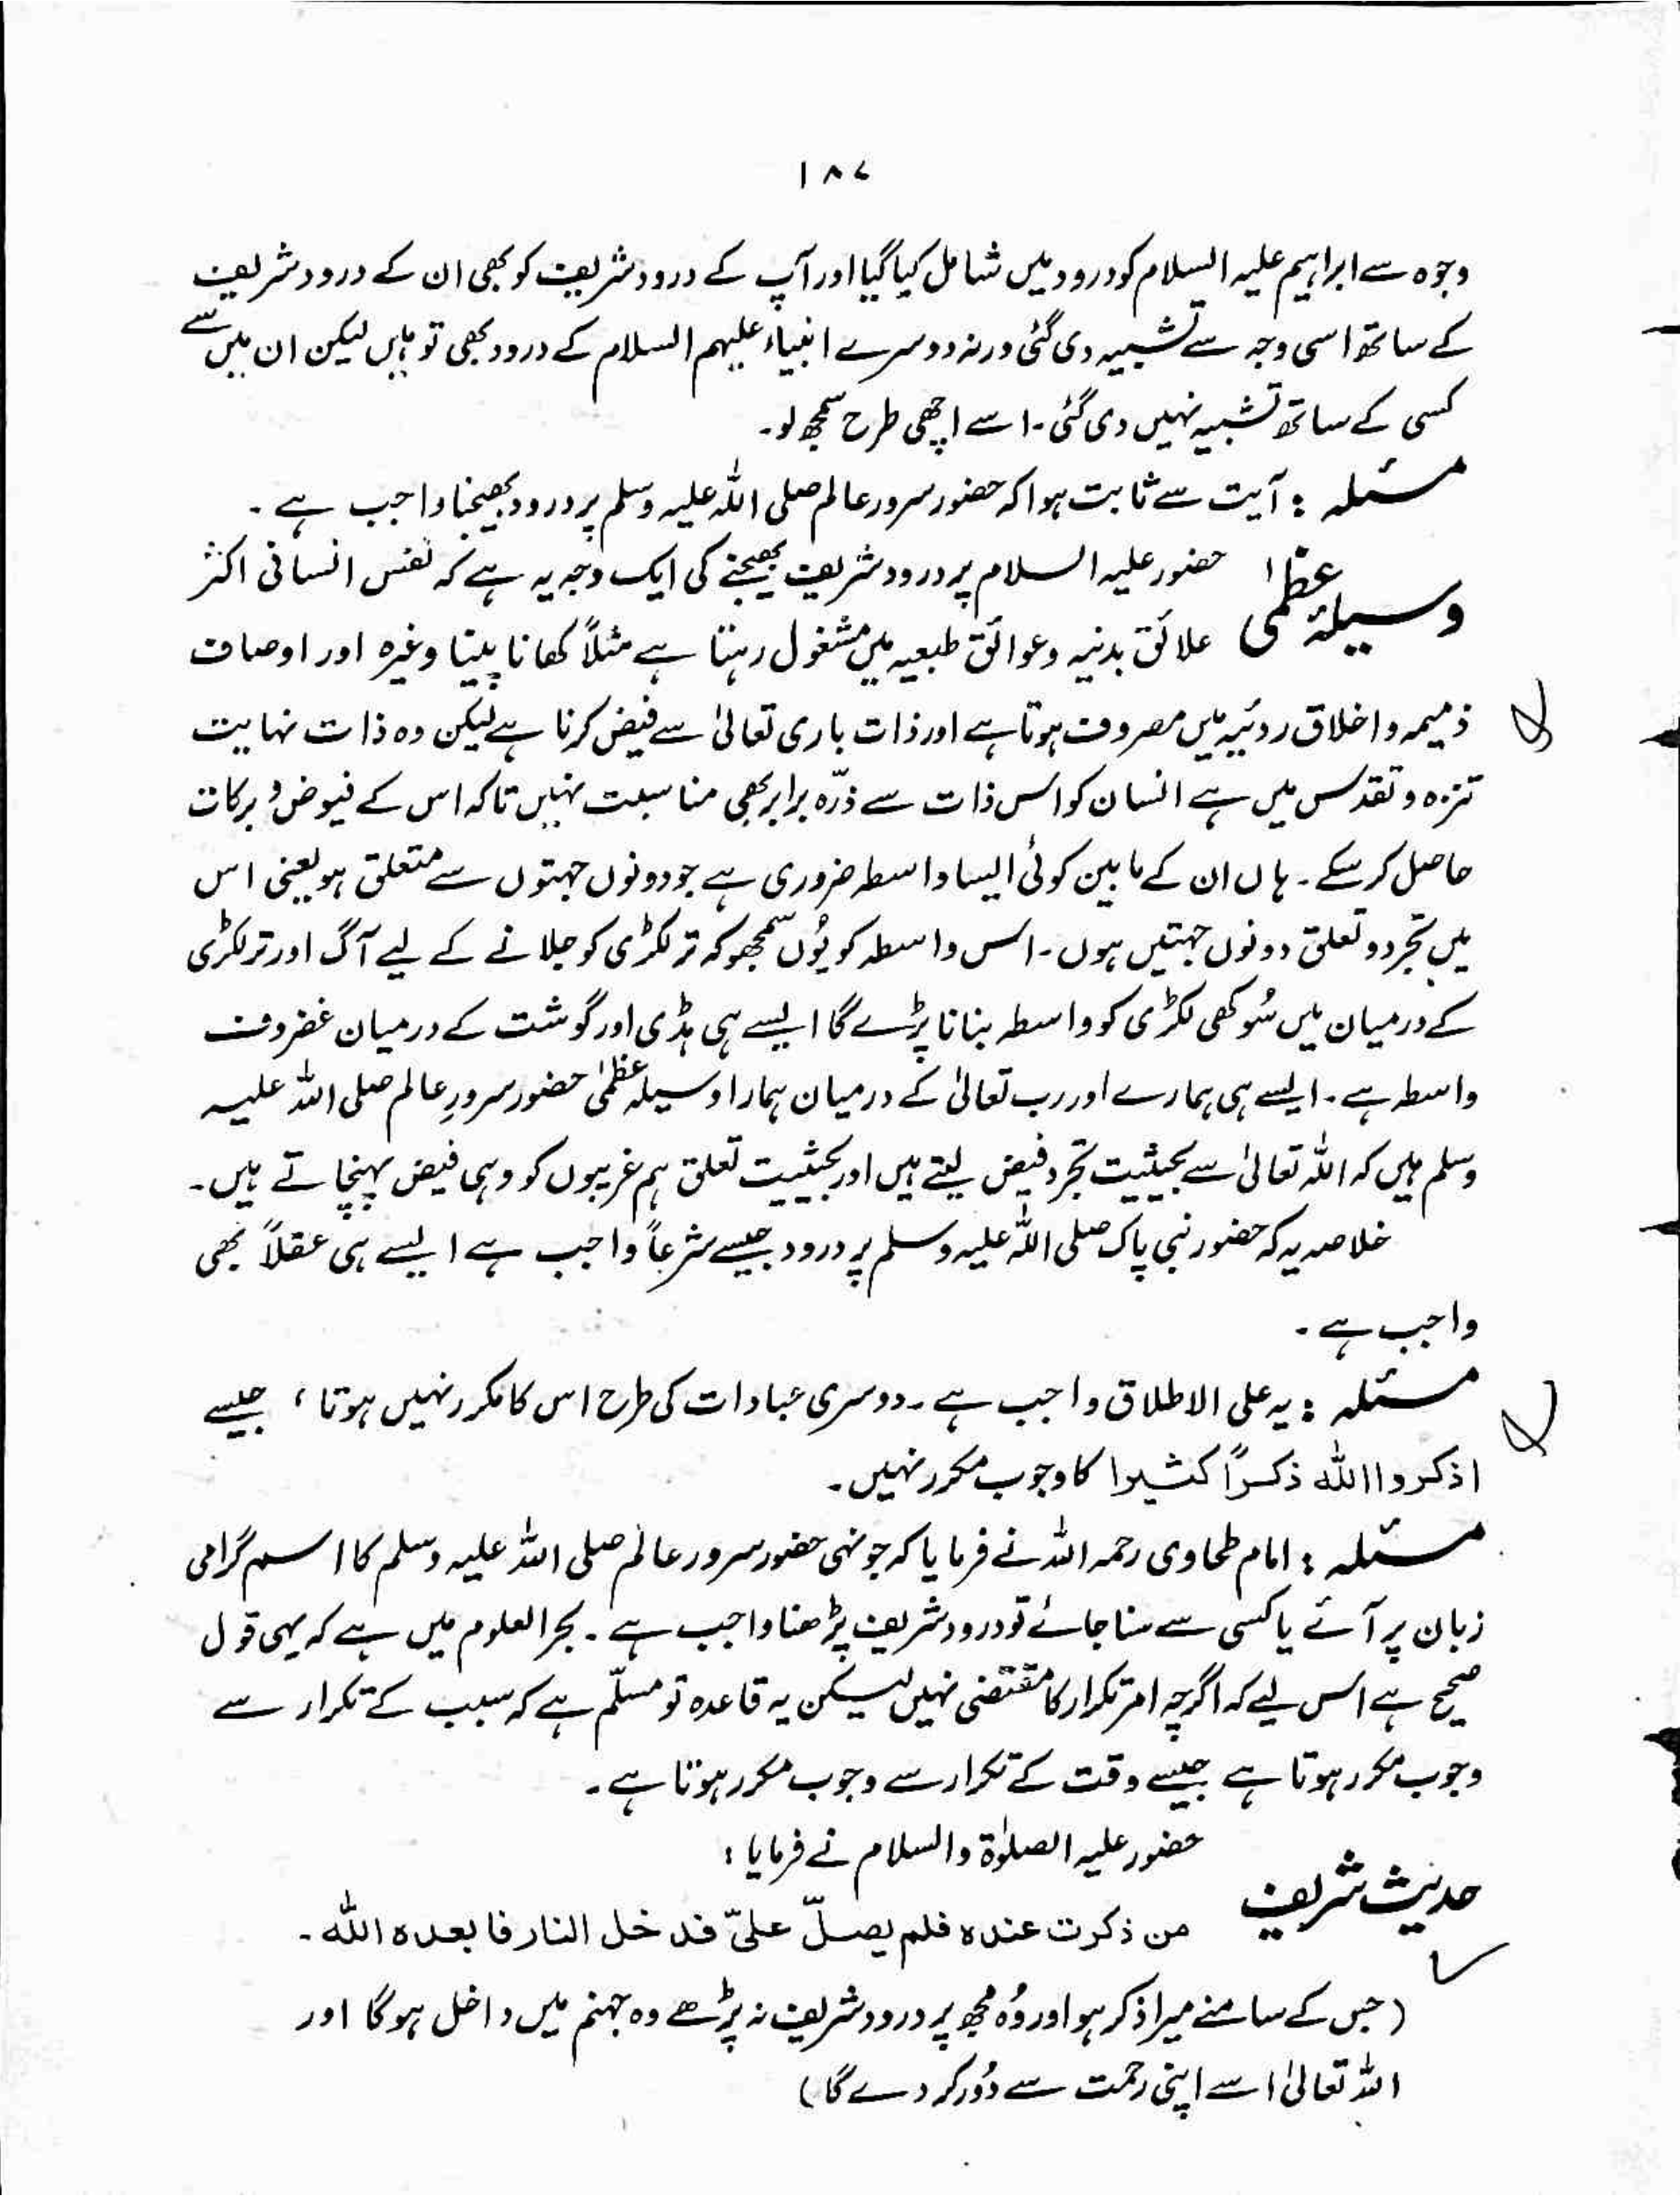 ۱۸۷
وجوہ سے ابراہیم علیہ السلام کو درود میں شامل کیا گیا اور آپ کے درود شریف کو بھی ان کے درود شریف
کے ساتھ اسی وجہ سے تشبیہ دی گئی ورنہ دوسرے انبیاء علیہم السلام کے درود بھی تو ہیں لیکن ان میں سے
کسی کے ساتھ تشبیہ نہیں دی گئی۔ اسے اچھی طرح سمجھ لو۔
مسئلہ : آیت سے ثابت ہوا کہ حضور سرور عالم صلی اللہ علیہ وسلم پر درود بھیجنا واجب ہے ۔
وسیلۂ عظمٰی حضور علیہ السلام پر درود شریف بھیجنے کی ایک وجہ یہ ہے کہ نفس انسانی اکثر
علائق بدنیہ وعوائق طبعیہ میں مشغول رہتا ہے مثلاً کھانا پینا وغیرہ اور اوصاف
ذمیمہ و اخلاق ردئیہ میں مصروف ہوتا ہے اور ذات باری تعالیٰ سے فیض کرنا ہے لیکن وہ ذات نہایت
تنزہ و تقدس میں ہے انسان کو اس ذات سے ذرّہ برابر بھی مناسبت نہیں تاکہ اس کے فیوض و برکات
حاصل کر سکے ۔ ہاں ان کے مابین کوئی ایسا واسطہ ضروری ہے جو دونوں جہتوں سے متعلق ہو یعنی اس
میں تجرد و تعلق دونوں جہتیں ہوں ۔ اس واسطہ کو یُوں سمجھو کہ تر لکڑی کو جلانے کے لیے آگ اور تر لکڑی
کے درمیان میں سُوکھی لکڑی کو واسطہ بنانا پڑے گا ایسے ہی ہڈی اور گوشت کے درمیان غضروف
واسطہ ہے ۔ ایسے ہی ہمارے اور رب تعالیٰ کے درمیان ہمارا وسیلہ عظمٰی حضور سرورِ عالم صلی اللہ علیہ
وسلم ہیں کہ اللہ تعالیٰ سے بحیثیت تجرد فیض لیتے ہیں اور بحیثیت تعلق ہم غریبوں کو وہی فیض پہنچاتے ہیں ۔
خلاصہ یہ کہ حضور نبی پاک صلی اللہ علیہ وسلم پر درود جیسے شرعاً واجب ہے ایسے ہی عقلاً بھی
واجب ہے ۔
مسئلہ : یہ علی الاطلاق واجب ہے ۔ دوسری عبادات کی طرح اس کا مکرر نہیں ہوتا ، جیسے
اذکروا اللہ ذکراً کثیرا کا وجوب مکرر نہیں ۔
مسئلہ : امام طحاوی رحمہ اللہ نے فرمایا کہ جونہی حضور سرور عالم صلی اللہ علیہ وسلم کا اسم گرامی
زبان پر آئے یا کسی سے سنا جائے تو درود شریف پڑھنا واجب ہے ۔ بحر العلوم میں ہے کہ یہی قول
صحیح ہے اس لیے کہ اگرچہ امر تکرار کا مقتضی نہیں لیکن یہ قاعدہ تو مسلّم ہے کہ سبب کے تکرار سے
وجوب مکرر ہوتا ہے جیسے وقت کے تکرار سے وجوب مکرر ہوتا ہے ۔
حضور علیہ الصلوٰۃ والسلام نے فرمایا :
حدیث شریف من ذکرت عندہ فلم یصلّ علیّ فدخل النار فابعدہ اللہ ۔
(جس کے سامنے میرا ذکر ہو اور وُہ مجھ پر درود شریف نہ پڑھے وہ جہنم میں داخل ہوگا اور
اللہ تعالیٰ اسے اپنی رحمت سے دُور کر دے گا)